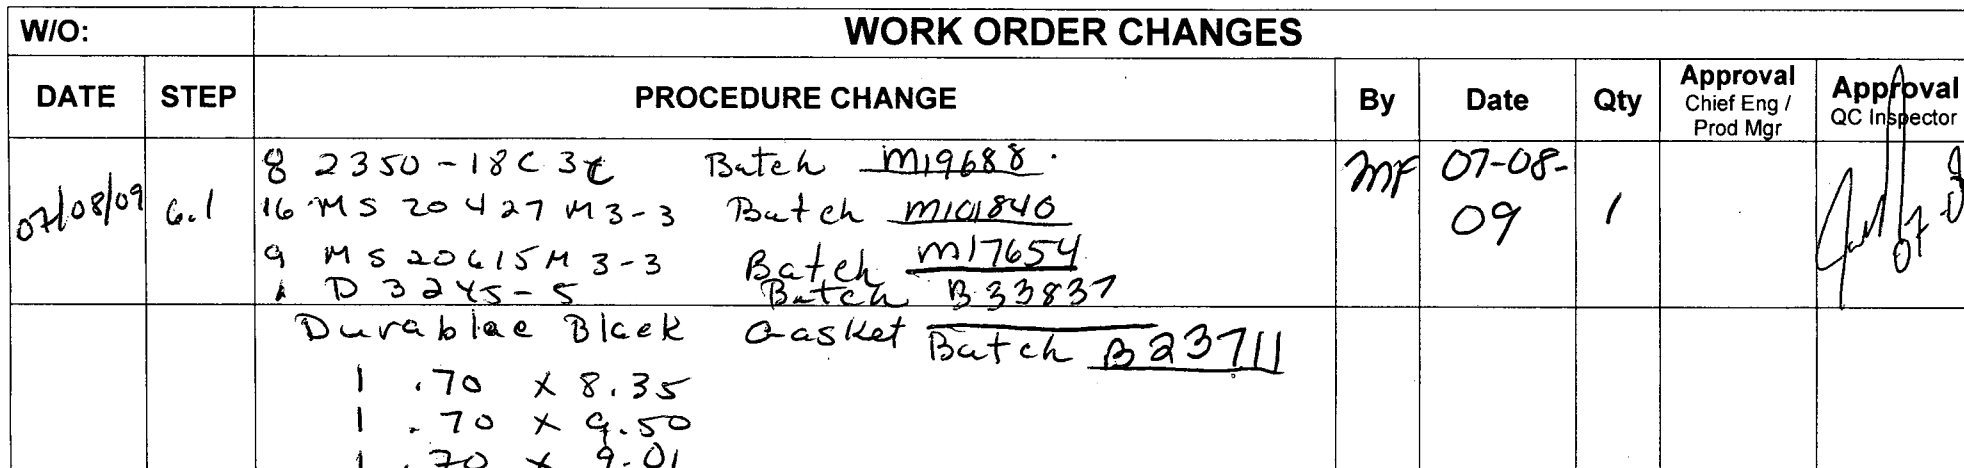 W/O: WORK ORDER CHANGES
DATE STEP PROCEDURE CHANGE By Date Qty Approval Chief Eng / Prod Mgr Approval QC Inspector
07/08/09 6.1 8 2350-18C3C Batch M19688 MF 07-08-09 1
16 MS 20427 M3-3 Batch M101840
9 MS20615M 3-3 Batch M17654
1 D 3245-5 Batch B33837
Durablac Black Gasket Batch B23711
1 .70 x 8.35
1 .70 x 9.50
1 .70 x 9.01